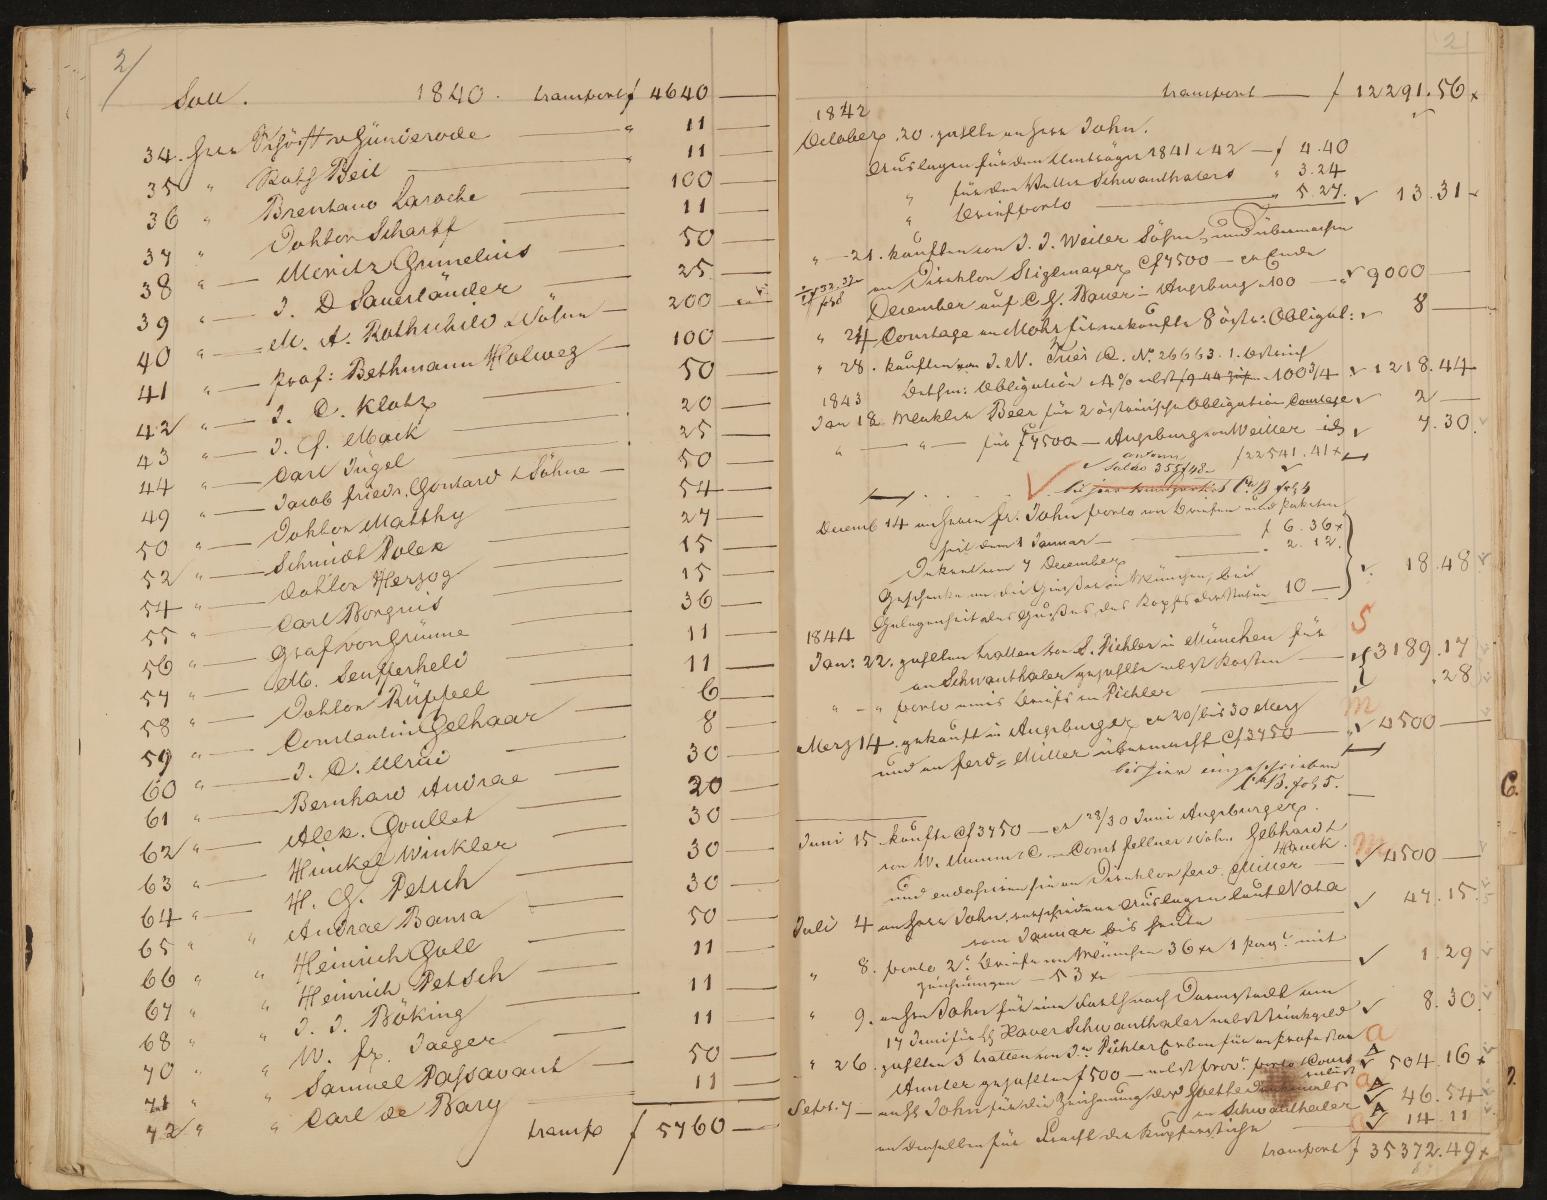 2/
Soll. 1840. transport f 4640 —
34. Herr Schöff v Günderode — " 11 —
35 " Rath Beil — " 11 —
36 " Brentano Laroche — 100 —
37 " Doktor Scharff — 11 —
38 " — Moritz Gunelius — 50 —
39 " — J. D Sauerländer — 25 —
40 " — M. A. Rothschild & Söhne — 200 —
41 " — Prof: Bethmann Holweg — 100 —
42 " — J. C. Klotz — 50 —
43 " — J. G. Mack — 20 —
44 " — Carl Jügel — 25 —
49 " — Jacob Friedr. Gontard & Söhne — 50 —
50 " — Doktor Matthy — 54 —
52 " — Schmidt Polex — 27 —
54 " — Doktor Herzog — 15 —
55 " — Carl Borgnis — 15 —
56 " — Graf von Grünne — 36 —
57 " — M. Seufferheld — 11 —
58 " — Doktor Rüppell — 11 —
59 " — Constantin Gelhaar — 6 —
60 " — J. C. — 8 —
61 " — Bernhard Andreae — 30 —
62 " — Alex. Goullet — 20 —
63 " — Hinckel Winkler — 30 —
64 " — H. G. Petsch — 30 —
65 " " Andreae Bansa — 30 —
66 " " Heinrich Goll — 50 —
67 " " Heinrich Petsch — 11 —
68 " " J. J. Böking — 11 —
70 " " W. Fr. Jaeger — 11 —
71 " " Samuel Passavant — 50 —
72 " " Carl de Bary — 11 —
transp f 5760 —
2
transport — f 12291.56 x
1842
October 20. zahlte an Herr John.
Auslagen für den Umträger 1841 & 42 — f 4.40
" für den Vetter Schwanthalers " 3.24
" Briefporto — " 5.27. 13.31 x
" — 21. kauften von J. J. Weiler Söhne, und übermachen
an Direktor Stiglmayer Cf 7500 — Ende
December auf C. G. Bauer in Augsburg 100 — 9000 —
" 24 Courtage an Mohr für verkaufte 8 östr: Obligat: 8 —
" 28. kauften von J. N. Trier & C. No. 26663. 1. östreich
Bethm: Obligation 4% nebst a 100 3/4 1218.44
1843
Jan 18. Meakler Beer für 2 östreichische Obligation Courtage 2 —
" — " — für f 7500 — Augsburg von Weiller 7.30.
f 22541.41 x
Saldo
bis hier C. B fol 4
Decemb 14 an Herrn Fr. John porto von Briefen und Paketen
seit dem 1 Januar — f 6.36 x
Inserat vom 7 December — " 2.12.
Geschenke an die Gießer in München, bei
Gelegenheit des Gußes, des Kopfs der Statue 10 — 18.48
1844 S
Jan: 22. zahlten tratten von S. Pichler in München für
an Schwanthaler gezahlte nebst Kosten — f 3189.17
" — " porto eines Briefs an Pichler — .28
m
Merz 14. gekauft in Augsburger 20/ bis 30 Merz
und an Ferd. Miller übermacht Cf 3750 — 4500 —
bis hier eingeschrieben
C. B. fol 5. —
Juni 15 kaufte Cf 3750 — 28/30 Juni Augsburger.
von W. Mumm & C. — Conrt Fellner Gebhard &
Hauck
und an Direktor Ferd. Miller — m 4500 —
Juli 4 an Herr John, verschiedene Auslagen laut Nota
vom Januar bis heute — 47.15.
" 8. porto 2. Briefe von München 36 xr 1 mit
Zeichnungen — 53 xr — 1.29
" 9. an Hrn John für eine Farth nach Darmstadt am
17 Juni für H Xaver Schwanthaler nebst trinkgeld 8.30.
" 26. zahlten 3 tratten von Pichler Erben für an Professor a
Amsler gezahlte f 500 — nebst prov. porto Cours 504.16 x
Septr. 7 — an H John für die Zeichnung des Goethe Denkmals a 46.54
an Schwanthaler
an denselben für Fracht der Kupferstiche — a 14.11
transport f 35372.49 x
C.